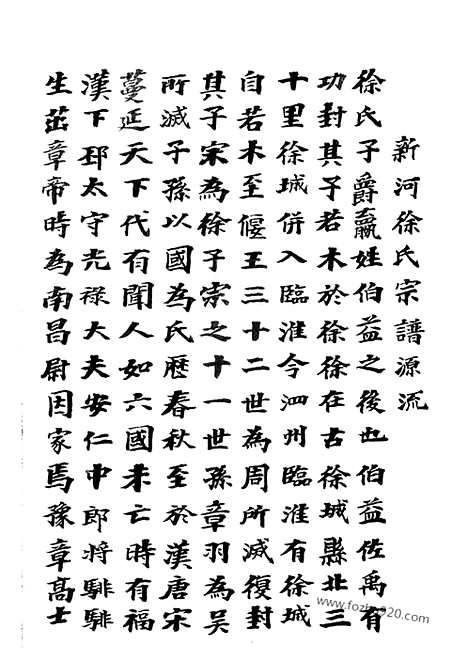 新河徐氏宗譜源流
徐氏子爵嬴姓伯益之後也伯益佐禹有
功封其子若木於徐徐在古徐城縣北三
十里徐城併入臨淮今泗州臨淮有徐城
自若木至偃王三十二世為周所滅復封
其子宋為徐子宗之十一世孫章羽為吴
所滅子孫以國為氏歷春秋至於漢唐宋
蔓延天下代有聞人如六國未亡時有福
漢下邳太守光祿大夫安仁中郎將騑騑
生茁章帝時為南昌尉因家焉豫章高士
www.foziyu920.com